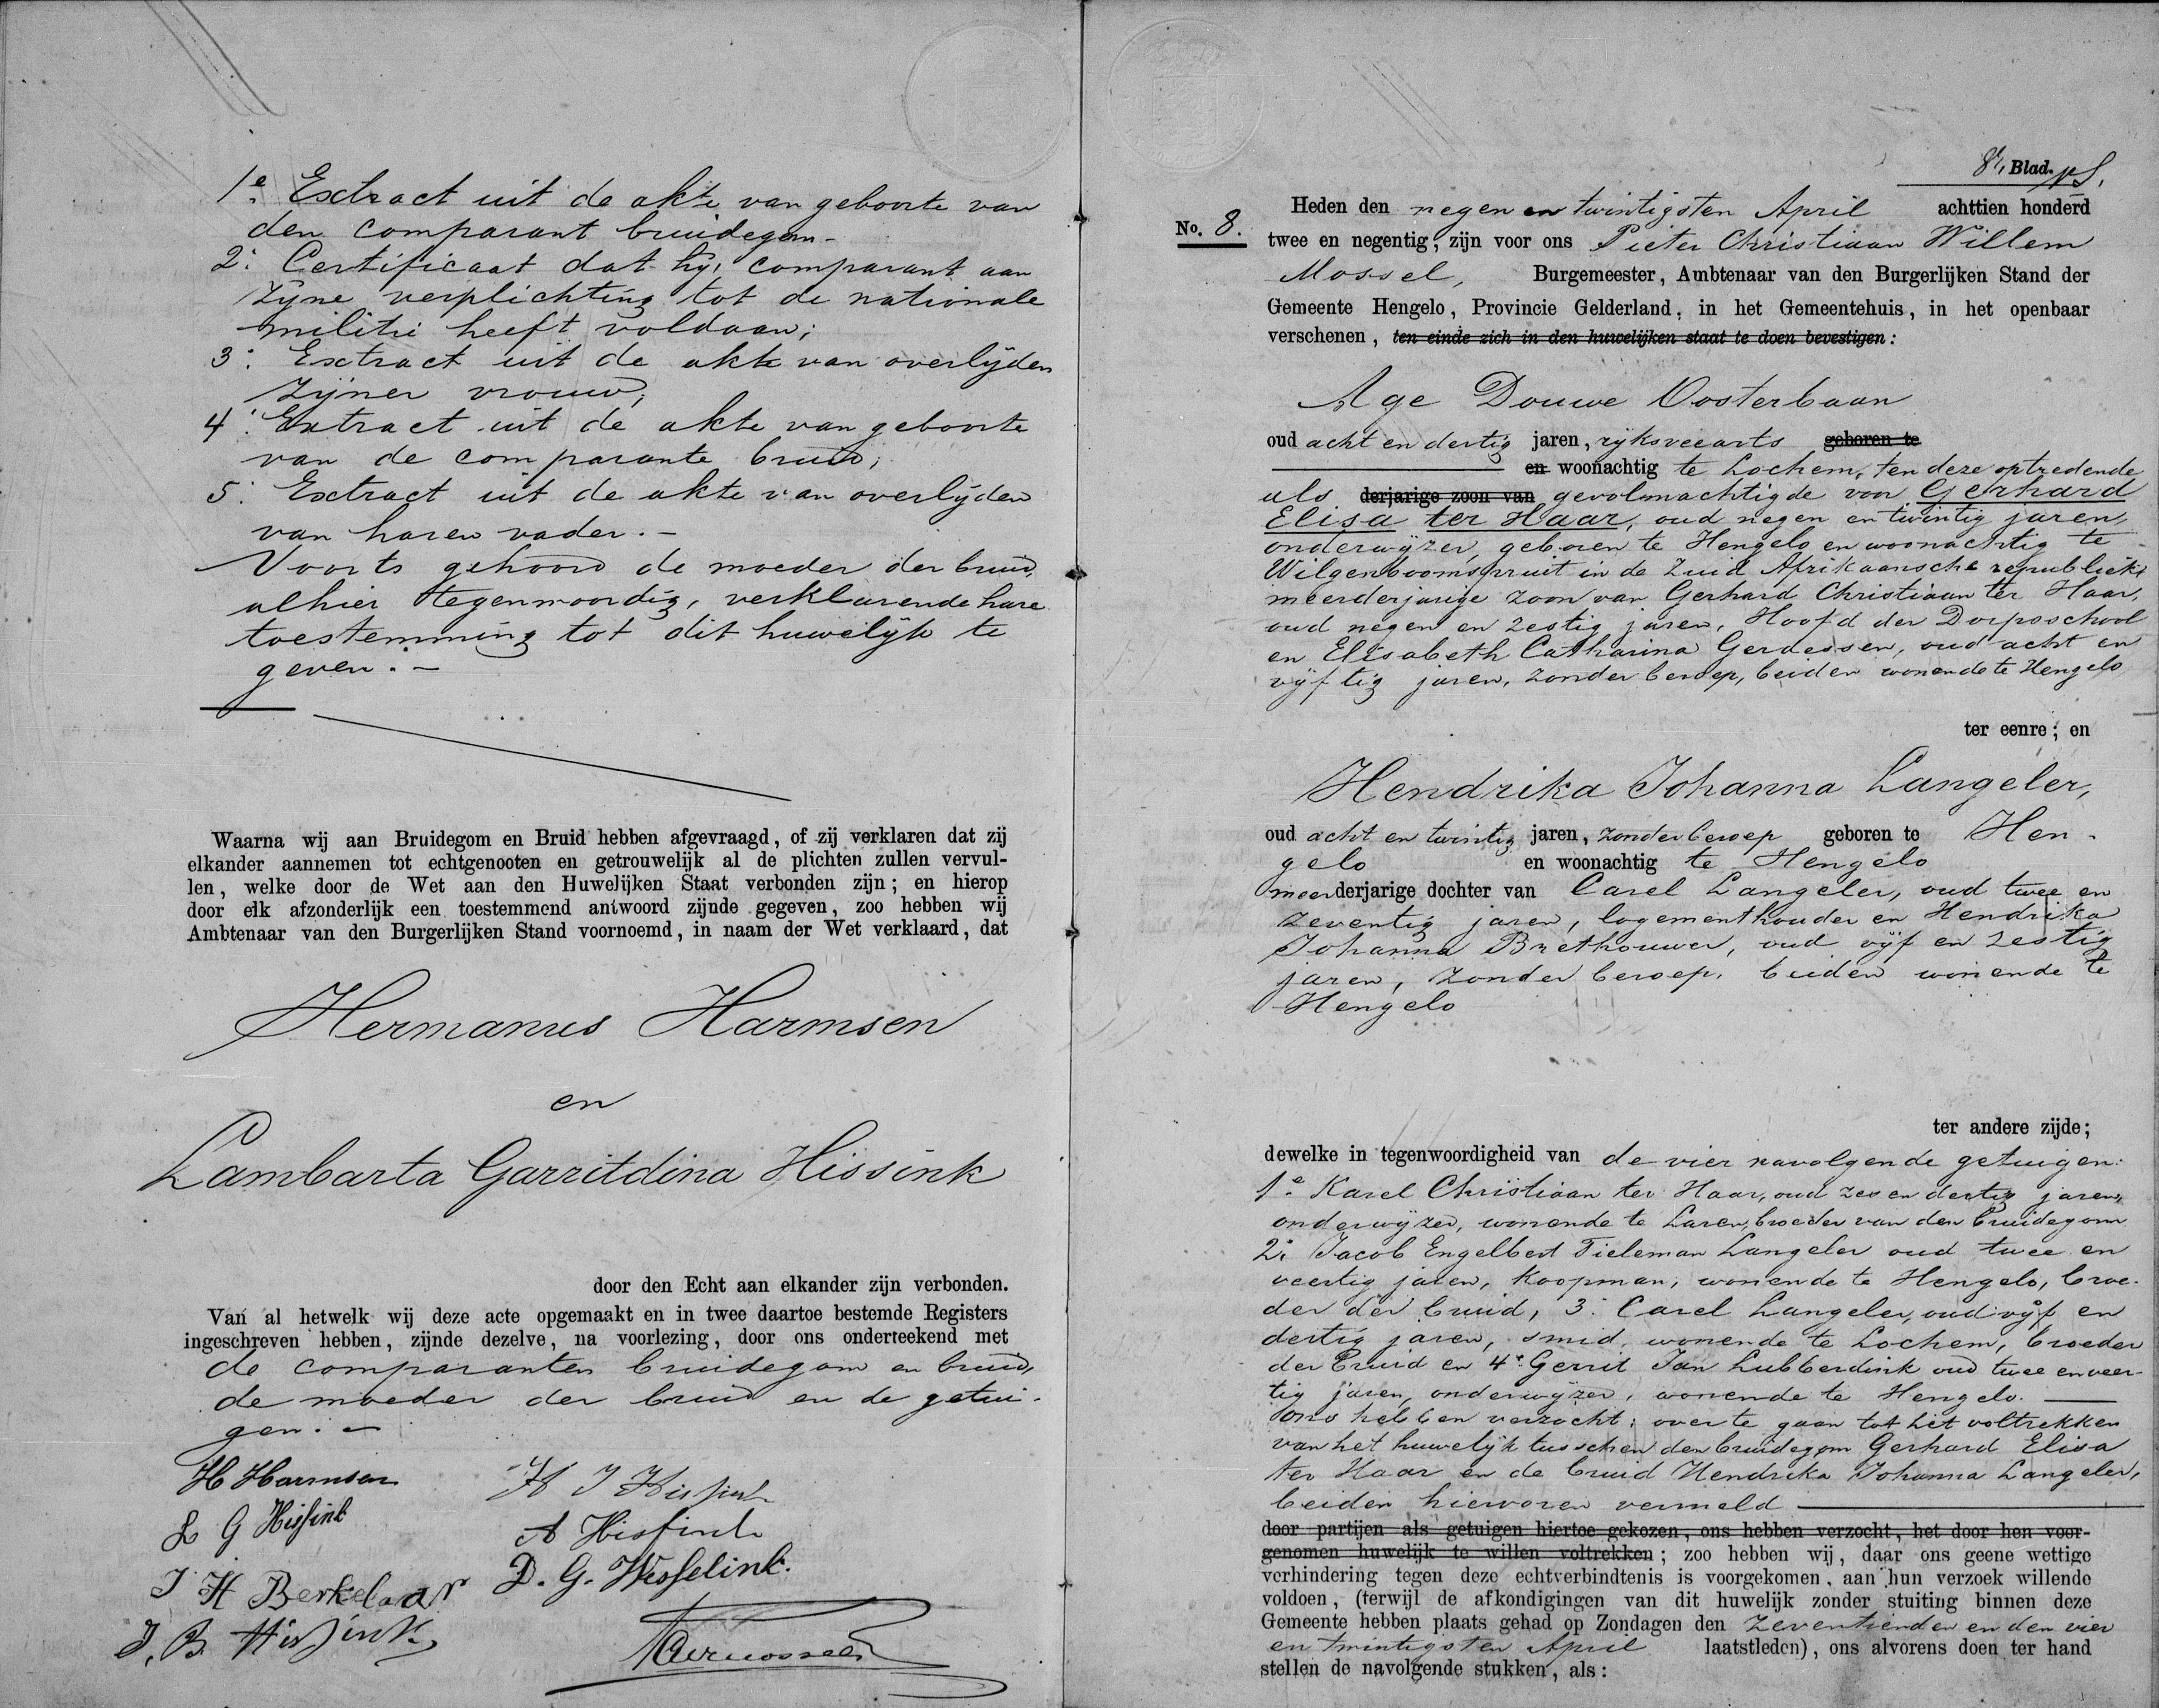 1e Extract uit de akte van geboorte van
den comparant bruidegom -
2e Certificaat dat hij, comparant aan
zijne verplichting tot de nationale
militie heeft voldaan;
3e Extract uit de akte van overlijden
zijner vrouw;
4e Extract uit de akte van geboorte
van de comparante bruid;
5e Extract uit de akte van overlijden
van haren vader. -
Voorts gehoord de moeder der bruid,
alhier tegenwoordig, verklarende hare
toestemming tot dit huwelijk te
geven. -
Waarna wij aan Bruidegom en Bruid hebben afgevraagd, of zij verklaren dat zij
elkander aannemen tot echtgenooten en getrouwelijk al de plichten zullen vervul-
len, welke door de Wet aan den Huwelijken Staat verbonden zijn; en hierop
door elk afzonderlijk een toestemmend antwoord zijnde gegeven, zoo hebben wij
Ambtenaar van den Burgerlijken Stand voornoemd, in naam der Wet verklaard, dat
Hermanus Harmsen
en
Lambarta Garritdina Hissink
door den Echt aan elkander zijn verbonden.
Van al hetwelk wij deze acte opgemaakt en in twee daartoe bestemde Registers
ingeschreven hebben, zijnde dezelve, na voorlezing, door ons onderteekend met
de comparanten bruidegom en bruid,
de moeder der bruid en de getui-
gen. -
H Harmsen
H J Hissink
L G Hissink
A Hissink
J H Berkelaar
D. G. Wesselink.
J. B. Hissink
8e Blad.
No. 8.
Heden den negen en twintigsten April achttien honderd
twee en negentig, zijn voor ons Pieter Christiaan Willem
Mossel, Burgemeester, Ambtenaar van den Burgerlijken Stand der
Gemeente Hengelo, Provincie Gelderland, in het Gemeentehuis, in het openbaar
verschenen, ten einde zich in den huwelijken staat te doen bevestigen:
Age Douwe Oosterbaan
oud acht en dertig jaren, rijksveearts geboren te
en woonachtig te Lochem, ten deze optredende
als derjarige zoon van gevolmachtigde van Gerhard
Elisa ter Haar, oud negen en twintig jaren,
onderwijzer, geboren te Hengelo en woonachtig te
Wilgenboomspruit in de Zuid Afrikaansche republiek,
meerderjarige zoon van Gerhard Christiaan ter Haar,
oud negen en zestig jaren, Hoofd der Dorpsschool
en Elisabeth Catharina Gerdessen, oud acht en
vijftig jaren, zonder beroep, beiden wonende te Hengelo
ter eenre; en
Hendrika Johanna Langeler,
oud acht en twintig jaren, zonder beroep geboren te Hen-
gelo en woonachtig te Hengelo
meerderjarige dochter van Carel Langeler, oud twee en
zeventig jaren, logementhouder en Hendrika
Johanna Brethouwer, oud vijf en zestig
jaren, zonder beroep, beiden wonende te
Hengelo
ter andere zijde;
dewelke in tegenwoordigheid van de vier navolgende getuigen:
1e Karel Christiaan ter Haar, oud zes en dertig jaren,
onderwijzer, wonende te Laren, broeder van den bruidegom
2e Jacob Engelbert Tieleman Langeler oud twee en
veertig jaren, koopman, wonende te Hengelo, broe-
der der bruid, 3e Carel Langeler, oud vijf en
dertig jaren, smid, wonende te Lochem, broeder
der bruid en 4e Gerrit Jan Lubberdink oud twee en veer-
tig jaren, onderwijzer, wonende te Hengelo.
ons hebben verzocht; over te gaan tot het voltrekken
van het huwelijk tusschen den bruidegom Gerhard Elisa
ter Haar en de bruid Hendrika Johanna Langeler,
beiden hiervoren vermeld
door partijen als getuigen hiertoe gekozen, ons hebben verzocht, het door hen voor-
genomen huwelijk te willen voltrekken; zoo hebben wij, daar ons geene wettige
verhindering tegen deze echtverbindtenis is voorgekomen, aan hun verzoek willende
voldoen, (terwijl de afkondigingen van dit huwelijk zonder stuiting binnen deze
Gemeente hebben plaats gehad op Zondagen den zeventienden en den vier
en twintigsten April laatstleden), ons alvorens doen ter hand
stellen de navolgende stukken, als: